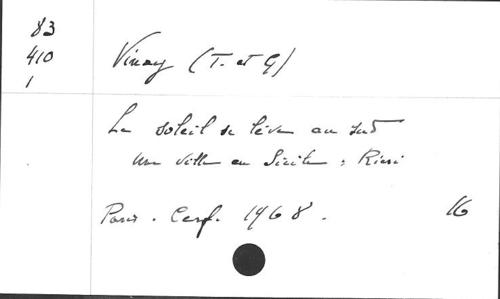 83
410
1
Vinay (T. et G)
Le soleil se lève au sud
Une ville en Sicile : Riesi
Paris. Cerf. 1968.
16